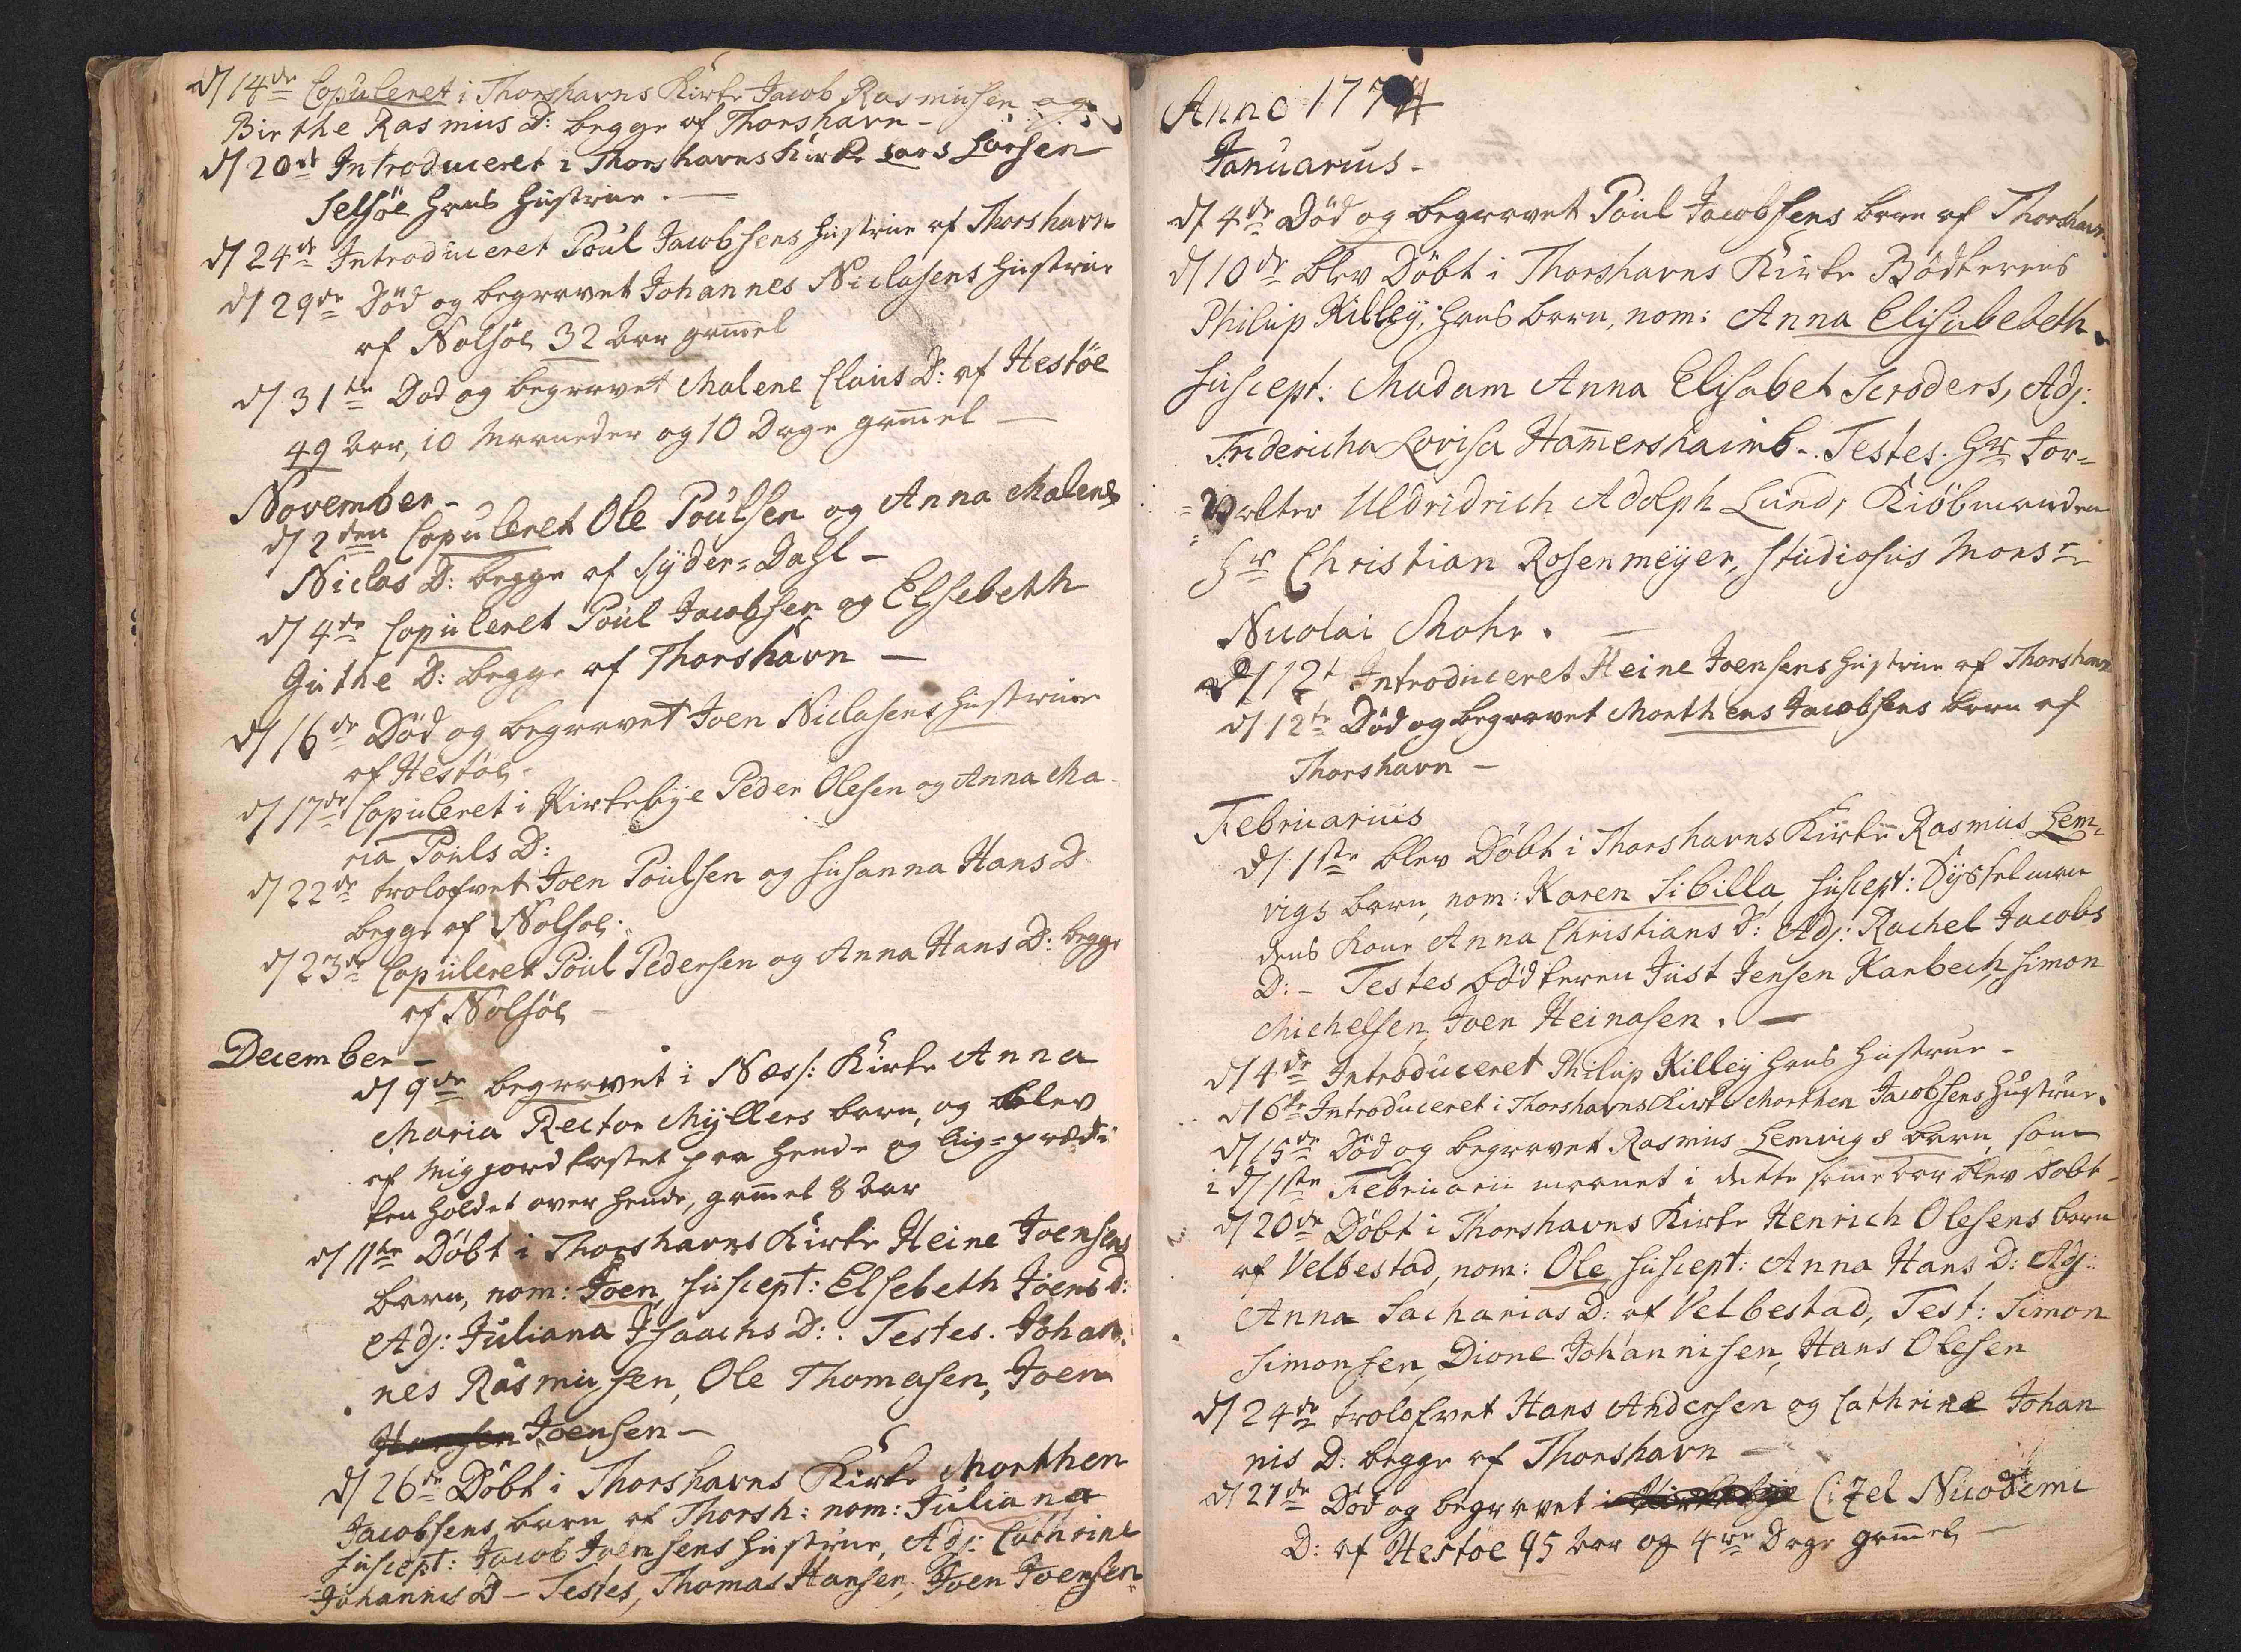 d/ 14de Copuleret i Thorshavns Kirke Jacob Rasmusen og
Birthe Rasmus D: begge af Thorshavn -
d/ 20de Introduceret i Thorshavns Kirke Lars Larsen
Selsöe hans Hustrue. -
d/ 24de Introduceret Poul Jacobsens Hustrue af Thorshavn
d/ 29de Död og begravet Johannes Niclasens Hustrue
af Nolsöe 32 Aar gammel
d/ 31te Död og begravet Malene Claus D: af Hestöe
49 Aar, 10 Maaneder og 10 Dage gammel -
November -
d/ 2den Copuleret Ole Poulsen og Anna Malene
Niclas D: begge af Syder=Dahl -
d/ 4de Copuleret Poul Jacobsen og Elsebeth
Guthe D: begge af Thorshavn -
d/ 16de Död og begravet Joen Niclasens Hustrue
af Hestöe -
d/ 17de Copuleret i Kirkebÿe Peder Olesen og Anna Ma-
ria Pouls D:
d/ 22de trolofvet Joen Poulsen og Susanna Hans D
begge af Nolsöe -
d/ 23de Copuleret Poul Pedersen og Anna Hans D: begge
af Nolsöe -
December -
d/ 9de begravet i Næss: Kirke Anna
Maria Rector Mÿllers barn, og blev
af Mig jord kastet paa hende og Lig=prædi
ken holdet over hende, gammel 8 Aar
d/ 11te Döbt i Thorshavns Kirke Heine Joensens
barn, nom: Joen, Suscept: Elsebeth Joens D:
Adj: Juliana Isaachs D: . Testes. Johan-
nes Rasmusen, Ole Thomasen, Joen
Joensen -
d/ 26de Döbt i Thorshavns Kirke Morthen
Jacobsens barn af Thorsh: nom: Juliana
Suscept: Jacob Joensens Hustrue, Adj: Cathrine
Johannis D - Testes, Thomas Hansen, Joen Joensen -
Anno 1774
Januarius -
d/ 4de Död og begravet Poul Jacobsens barn af Thorshavn
d/ 10de blev Döbt i Thorshavns Kirke Bödkerens
Philip Killeÿ, hans barn, nom: Anna Elisabebeth.
Suscept: Madam Anna Elisabet Scroders, Adj:
Fridericha Lovisa Hamershaimb -. Testes. Hr For=
=valter Uldridrich Adolph Lund, Kiöbmanden
Hr Christian Rosenmeÿer, Studiosus Monsr
Nicolai Mohr. -
d/ 12t Introduceret Heine Joensens Hustrue af Thorshavn
d/ 12te Död og begravet Morthens Jacobsens barn af
Thorshavn -
Februarius
d/ 1ste blev Döbt i Thorshavns Kirke Rasmus Lem=
vigs barn, nom: Karen Sibilla, Suscept: Sÿsselman
dens Kone Anna Christians D: Adj: Rachel Jacobs
D: - Testes bödkeren Just Jensen Karbech, Simon
Michelsen, Joen Heinasen. -
d/ 4de Introduceret Philip Killeÿ hans Hustrue -
d/ 6te Introduceret i Thorshavns Kirke Morthen Jacobsens Hustrue.
d/ 15de Död og begravet Rasmus Lemvigs barn, som
i d/ 1ste Februarii maanet i dette same Aar blev döbt -
d/ 20de Döbt i Thorshavns Kirke Henrich Olesens barn
af Velbestad, nom: Ole Suscept: Anna Hans D: Adj:
Anna Sacharias D: af Velbestad, Test: Simon
Simonsen, Dione Johannisen, Hans Olesen
d/ 24de trolofvet Hans Andersen og Cathrine Johan
nis D: begge af Thorshavn -
d/ 27de Död og begravet i Kirkebÿe Cizel Nicodemi
D: af Hestöe 95 Aar og 4re Dage gammel -